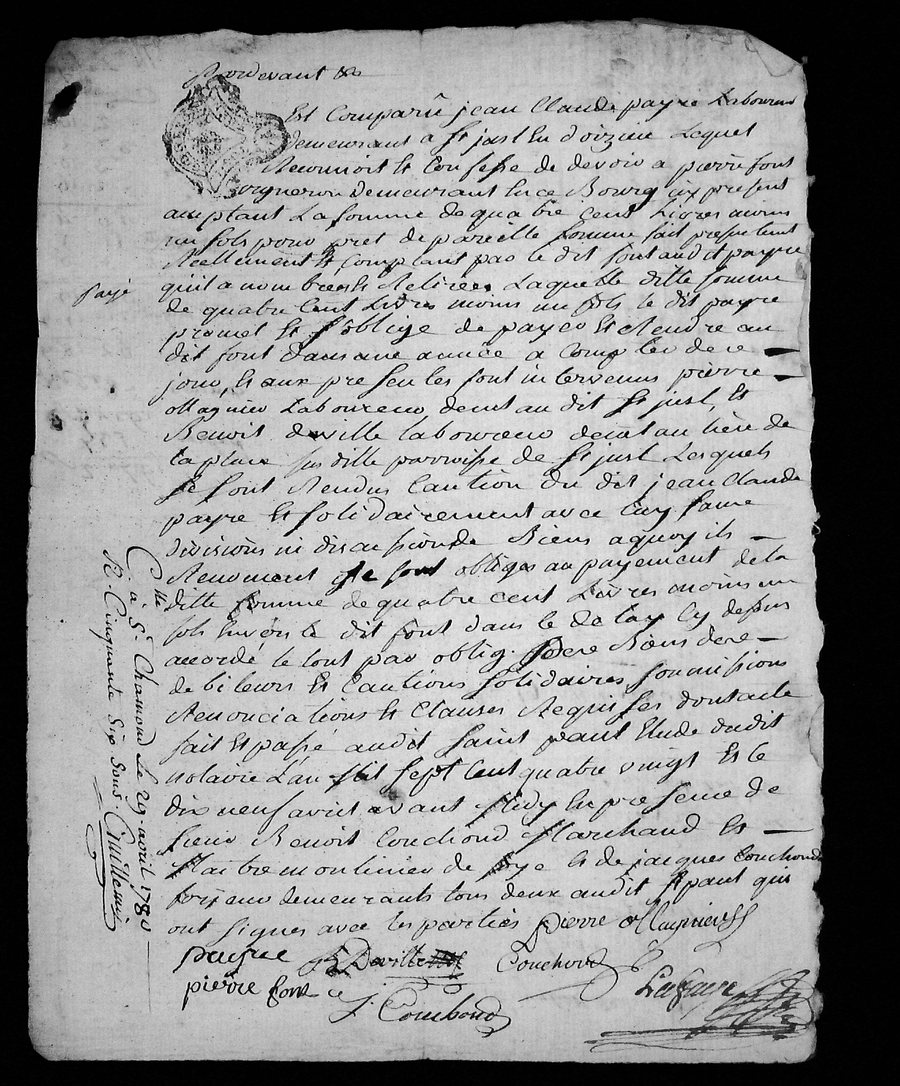 Pardevant &c
Est Comparû jean Claude payre Laboureur
demeurant a St just En doizieu Lequel
Reconnoit Et Confesse de devoir a pierre font
vigneron demeurant En ce Bourg icy present
acceptant La somme de quatre cent Livres moins
un sols pour pret de pareille somme fait presentement
Reellement Et Comptant par le dit font audit payre
qui l'a nombreé Et Retireé Laquelle ditte somme
payé
de quatre Cent Livres moins un sols le dit payre
promet Et s'oblige de payer Et Rendre au
dit font dans une anneé a Compter de ce
jour, Et aux presentes sont intervenus pierre
Magnier Laboureur demt au dit St just, Et
Benoit deville laboureur demt au lieu de
la place sus ditte parroisse de St just Lesquels
se sont Rendus Caution du dit jean Claude
payre Et solidairement avec luy sans
division ni discussion de Biens a quoy ils
Renoncent Et se sont obliges au payement de la
ditte somme de quatre cent Livres moins un
sols Envers le dit font dans le delay Cy dessus
accordé le tout par oblig. de ce Biens de ce
debiteurs Et Cautions solidaires soumissions
Renonciations Et Clauses Requises dont acte
fait Et passé audit saint paul Etude dudit
notaire L'an Mil sept Cent quatre vingt Et le
dix neuf avril avant Midy En presence de
sieur Benoit Couchoud Marchand Et
Maitre moulinier de soye Et de jacques Couchoud
demeurants tous deux audit St paul qui
ont signes avec les parties pierre Magnier
payre B Deville Couchoud
pierre font J. Coucboud Lafaye
Clle
à St Chamond Le 29 avril 1780
R. Cinquante Six Sous. Guillemin